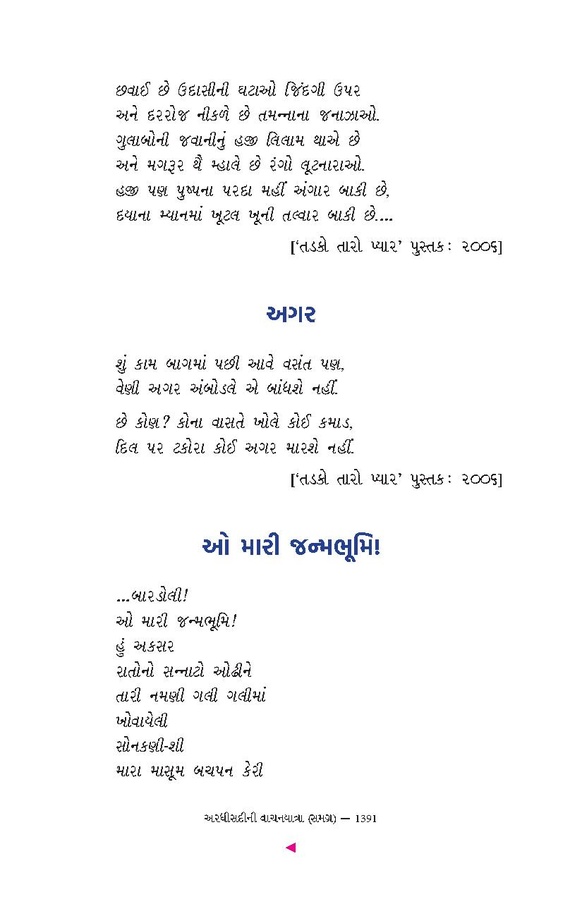 છવાઈ છે ઉદાસીની ઘટાઓ જિંદગી ઉપર
અને દરરોજ નીકળે છે તમન્નાના જનાઝાઓ.
ગુલાબોની જવાનીનું હજી લિલામ થાએ છે
અને મગરૂર થૈ મ્હાલે છે રંગો લૂટનારાઓ.
હજી પણ પુષ્પના પરદા મહીં અંગાર બાકી છે,
દયાના મ્યાનમાં ખૂટલ ખૂની તલ્વાર બાકી છે....
[‘તડકો તારો પ્યાર’ પુસ્તક: ૨૦૦૬]
અગર
શું કામ બાગમાં પછી આવે વસંત પણ,
વેણી અગર અંબોડલે એ બાંધશે નહીં.
છે કોણ? કોના વાસતે ખોલે કોઈ કમાડ,
દિલ પર ટકોરા કોઈ અગર મારશે નહીં.
[‘તડકો તારો પ્યાર’ પુસ્તક: ૨૦૦૬]
ઓ મારી જન્મભૂમિ!
...બારડોલી!
ઓ મારી જન્મભૂમિ!
હું અકસર
રાતોનો સન્નાટો ઓઢીને
તારી નમણી ગલી ગલીમાં
ખોવાયેલી
સોનકણી-શી
મારા માસૂમ બચપન કેરી
અરધીસદીની વાચનયાત્રા (સમગ્ર) — 1391